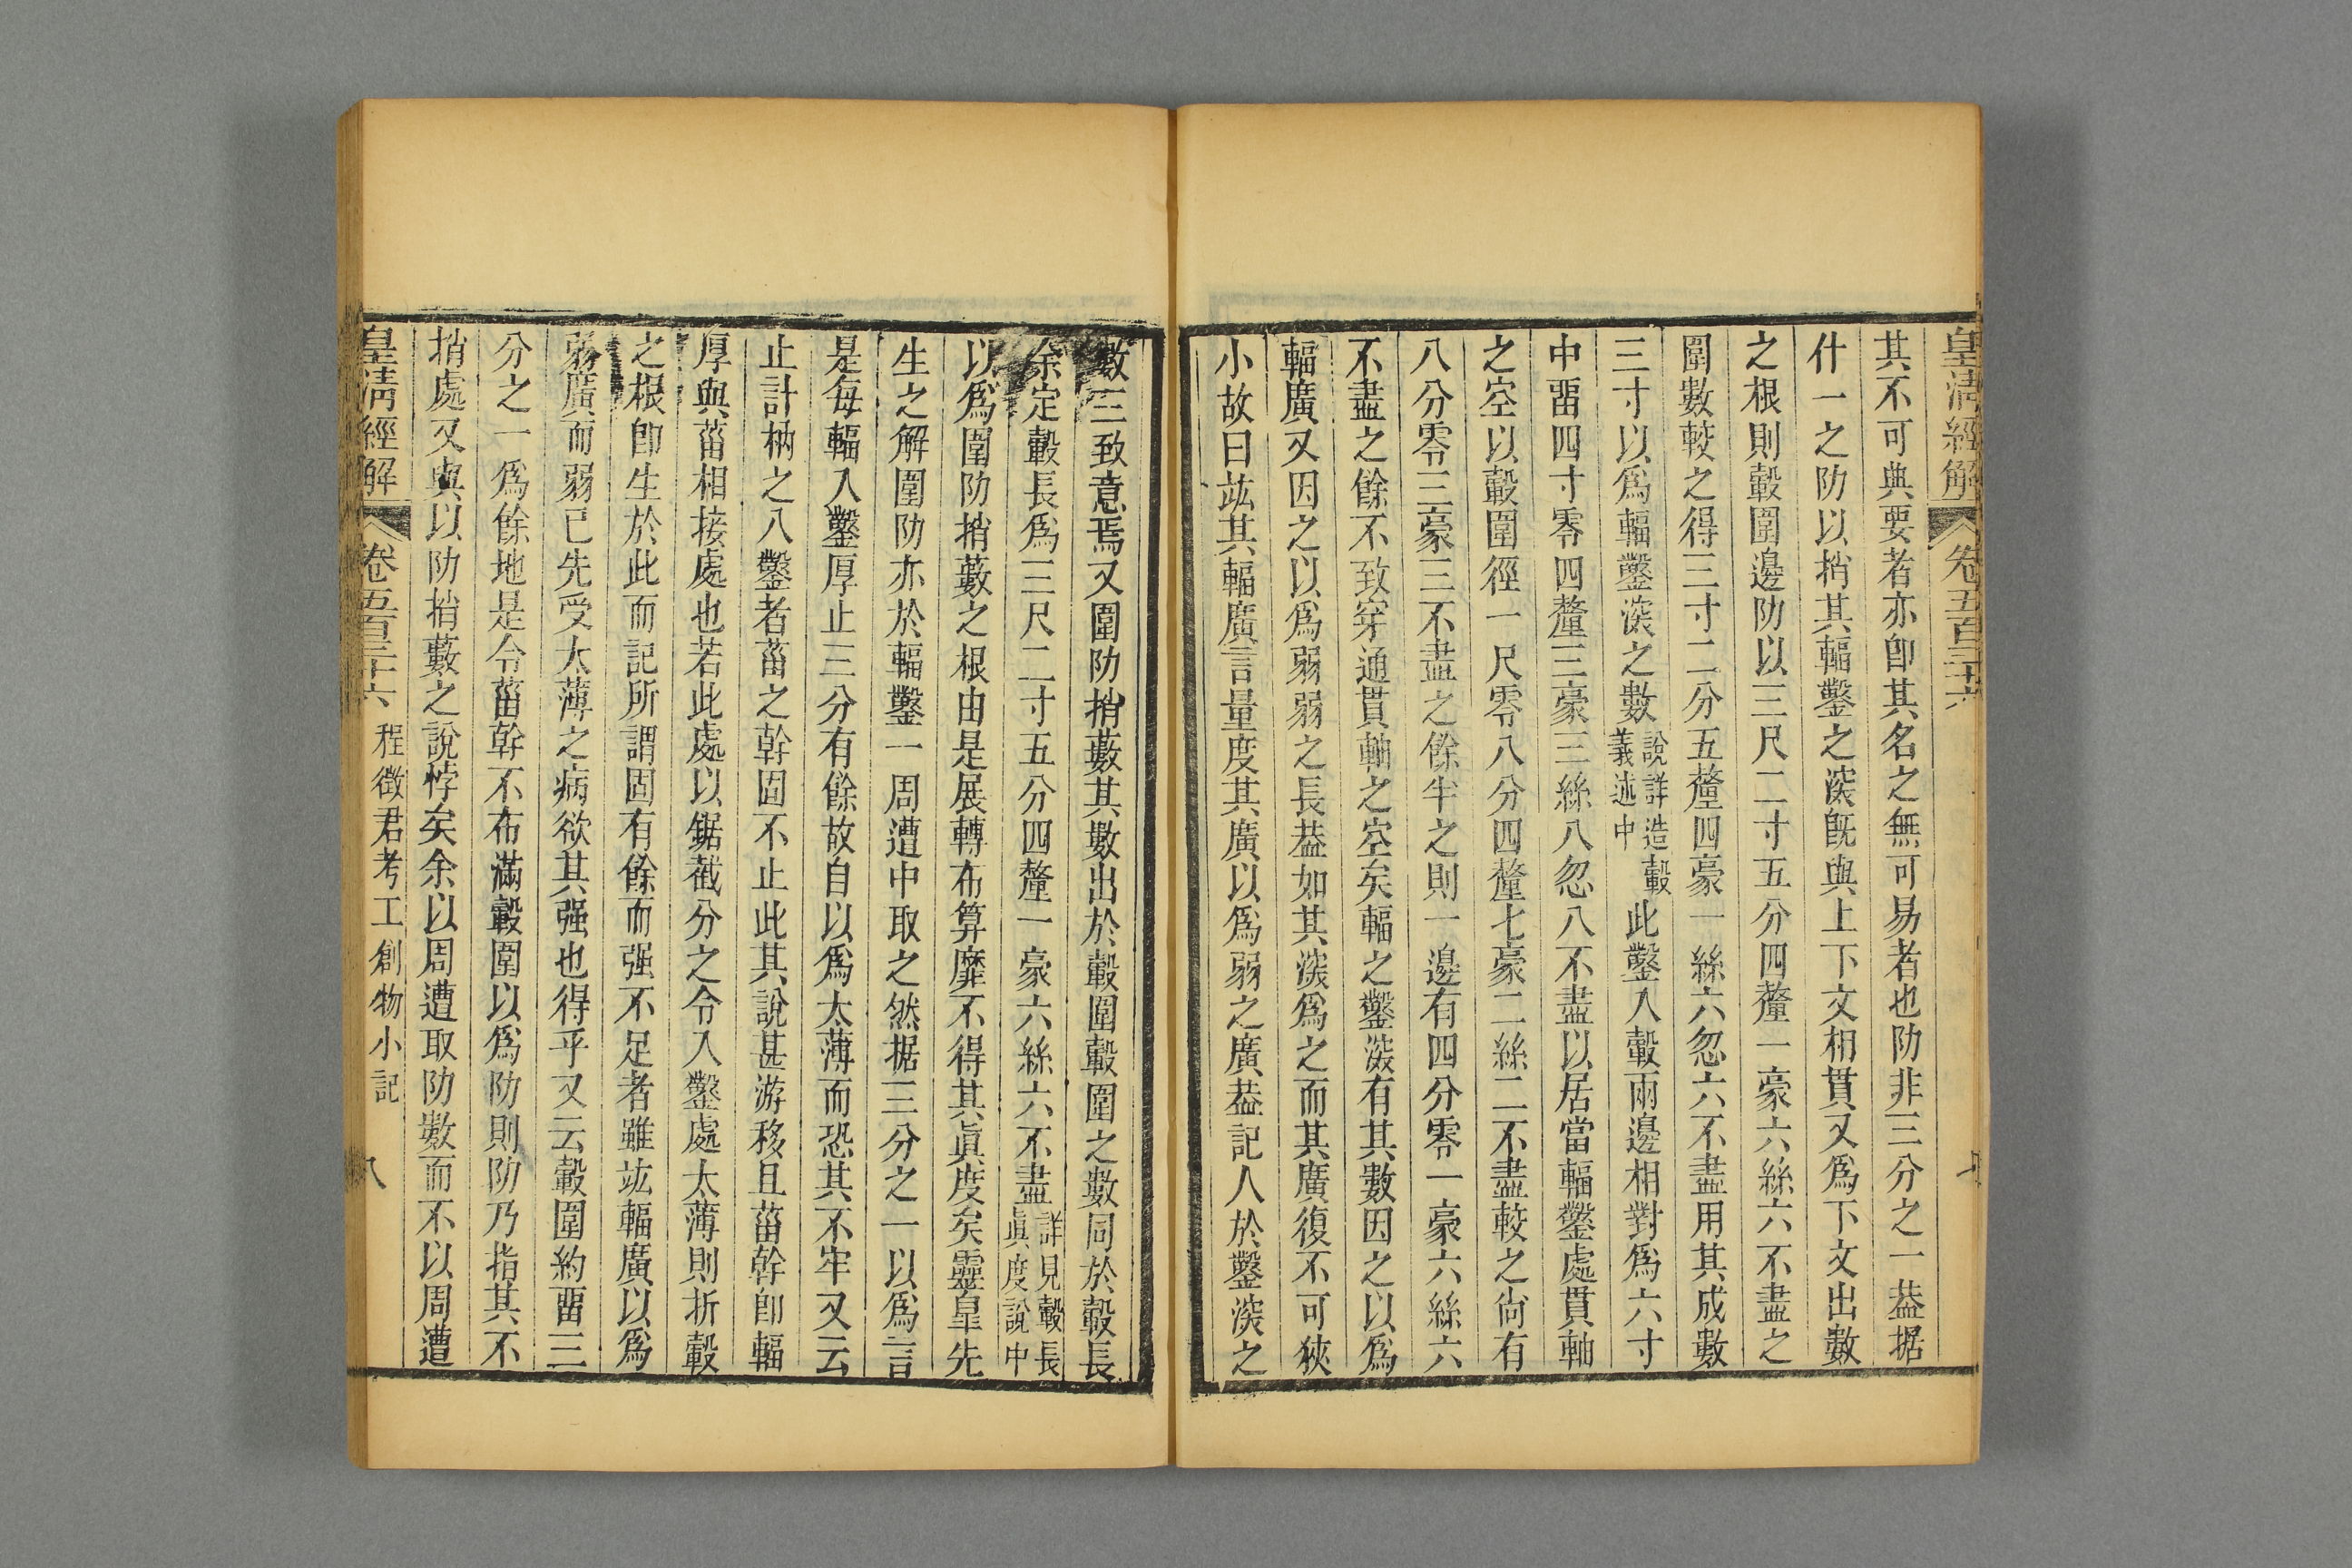 皇淸經解 卷五百三十六
其不可典要者亦卽其名之無可易者也阞非三分之一葢据
什一之阞以捎其輻鑿之㴱旣與上下文相貫又爲下文出數
之根則轂圍邊阞以三尺二寸五分四釐一豪六絲六不盡之
圍數較之得三寸二分五釐四豪一絲六忽六不盡用其成數
三寸以爲輻鑿㴱之數說詳造轂義述中此鑿入轂兩邊相對爲六寸
中畱四寸零四釐三豪三絲八忽八不盡以居當輻鑿處貫軸
之空以轂圍徑一尺零八分四釐七豪二絲二不盡較之尙有
八分零三豪三不盡之餘半之則一邊有四分零一豪六絲六
不盡之餘不致穿通貫軸之空矣輻之鑿㴱有其數因之以爲
輻廣又因之以爲弱弱之長葢如其㴱爲之而其廣復不可狹
小故曰竑其輻廣言量度其廣以爲弱之廣葢記人於鑿㴱之
數三致意焉又圍阞捎藪其數出於轂圍轂圍之數同於轂長
余定轂長爲三尺二寸五分四釐一豪六絲六不盡詳見轂長眞度說中
以爲圍阞捎藪之根由是展轉布算靡不得其眞度矣靈皐先
生之解圍阞亦於輻鑿一周遭中取之然据三分之一以爲言
是每輻入鑿厚止三分有餘故自以爲太薄而恐其不牢又云
止計枘之入鑿者菑之幹固不止此其說甚游移且菑幹卽輻
厚與菑相接處也若此處以鋸截分之令入鑿處太薄則折轂
之根卽生於此而記所謂固有餘而强不足者雖竑輻廣以爲
弱廣而弱已先受太薄之病欲其强也得乎又云轂圍約畱三
分之一爲餘地是令菑幹不布滿轂圍以爲阞則阞乃指其不
捎處又與以阞捎藪之說悖矣余以周遭取阞數而不以周遭
皇淸經解 卷五百三十六 程徵君考工創物小記 八